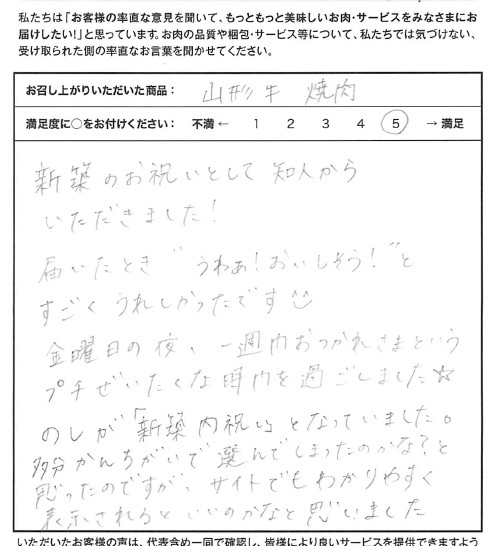 私たちは「お客様の率直な意見を聞いて、もっともっと美味しいお肉・サービスをみなさまにお
届けしたい!」と思っています。お肉の品質や梱包・サービス等について、私たちでは気づけない、
受け取られた側の率直なお言葉を聞かせてください。
お召し上がりいただいた商品： 山形牛 焼肉
満足度に○をお付けください： 不満 ← 1 2 3 4 5 → 満足
新築のお祝いとして知人から
いただきました!
届いたとき“うわぁ!おいしそう!”と
すごくうれしかったです
金曜日の夜、一週間おつかれさまという
プチぜいたくな時間を過ごしました☆
のしが「新築内祝い」となっていました。
多分かんちがいで選んでしまったのかな?と
思ったのですが、サイトでもわかりやすく
表示されるといいのかなと思いました
いただいたお客様の声は、代表含め一同で確認し、皆様により良いサービスを提供できますよう